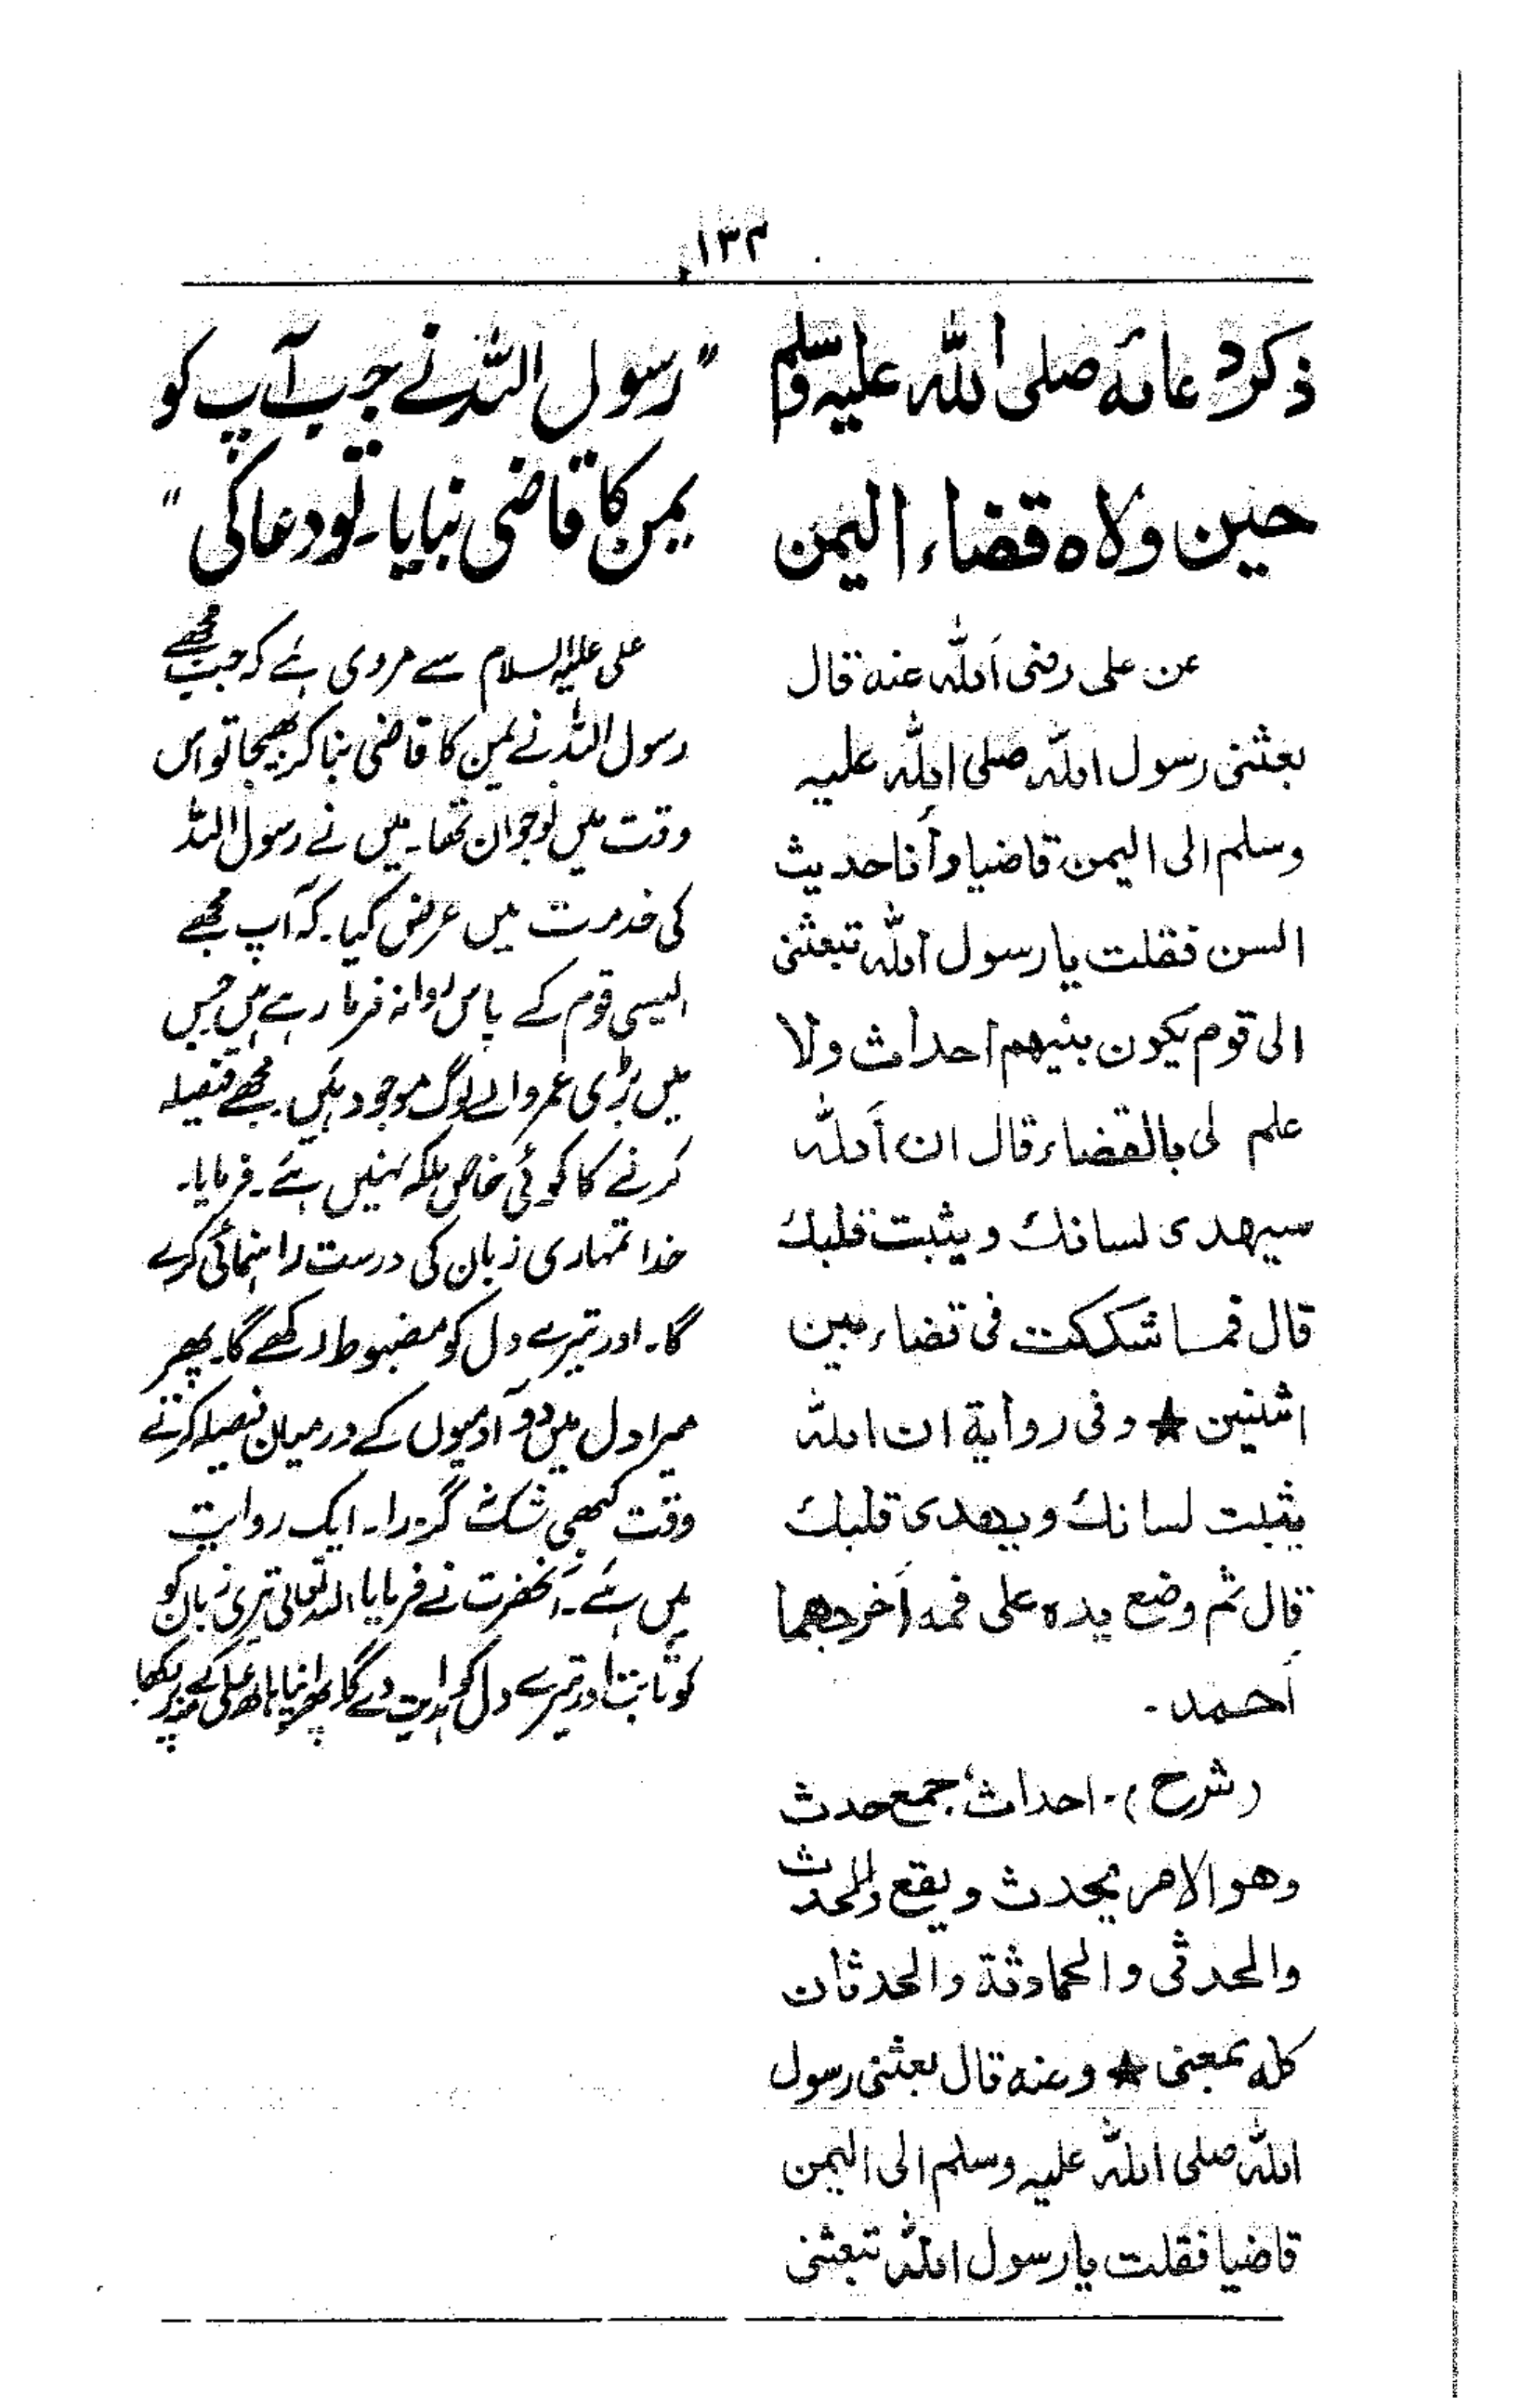 ۱۳۴
ذکر دعائه صلی الله علیه وسلم
حین ولاه قضاء الیمن
عن علی رضی الله عنه قال
بعثنی رسول الله صلی الله علیه
وسلم الی الیمن قاضیا وأنا حدیث
السن فقلت یا رسول الله تبعثنی
الی قوم یکون بینهم احداث ولا
علم لی بالقضاء قال ان الله
سیهدی لسانك ویثبت قلبك
قال فما شککت فی قضاء بین
اثنین ★ وفی روایة ان الله
یثبت لسانك ویهدی قلبك
قال ثم وضع یده علی فمه اخرجهما
أحمد۔
(شرح)۔ احداث، جمع حدث
وهو الامر یحدث ویقع والحدث
والحدثی والحادثة والحدثان
کله بمعنی ★ وعنه قال بعثنی رسول
الله صلی الله علیه وسلم الی الیمن
قاضیا فقلت یا رسول الله تبعثنی
"رسول اللہ نے جب آپ کو
یمن کا قاضی بنایا۔ تو دعا کی"
علی علیہ السلام سے مروی ہے کہ جب مجھے
رسول اللہ نے یمن کا قاضی بنا کر بھیجا تو اس
وقت میں نوجوان تھا۔ میں نے رسول اللہ
کی خدمت میں عرض کیا۔ کہ آپ مجھے
ایسی قوم کے پاس روانہ فرما رہے ہیں جس
میں بڑی عمر والے لوگ موجود ہیں۔ مجھے فیصلہ
کرنے کا کوئی خاص ملکہ نہیں ہے۔ فرمایا۔
خدا تمہاری زبان کی درست راہنمائی کرے
گا۔ اور تیرے دل کو مضبوط رکھے گا۔ پھر
میرا دل میں دو آدمیوں کے درمیان فیصلہ کرتے
وقت کبھی شک نہ گزرا۔ ایک روایت
میں ہے۔ آنحضرت نے فرمایا اللہ تعالی تیری زبان کو
کو ثابت اور تیرے دل کو ہدایت دے گا پھر اپنا ہاتھ علی کے منہ پر رکھا